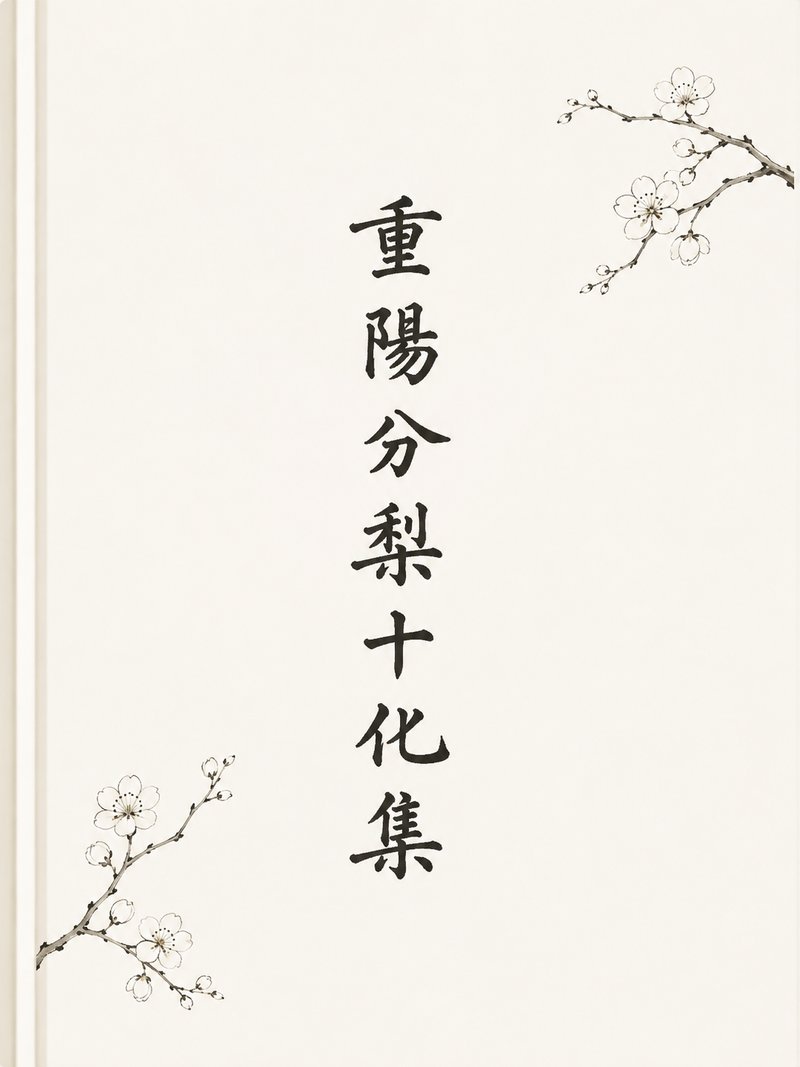 重陽分梨十化集